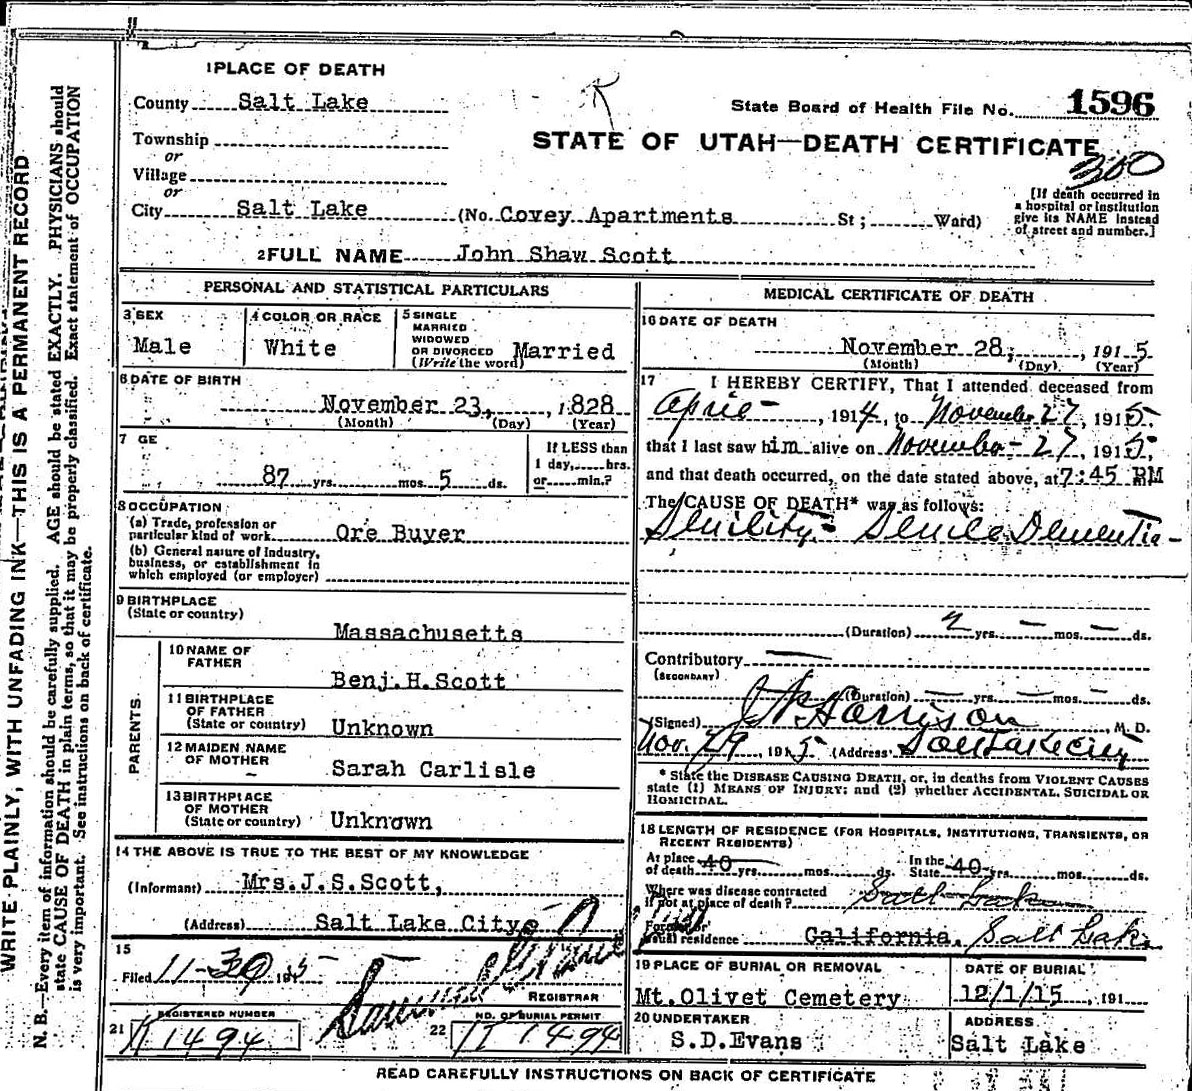 WRITE PLAINLY, WITH UNFADING INK—THIS IS A PERMANENT RECORD
N. B.—Every item of information should be carefully supplied. AGE should be stated EXACTLY. PHYSICIANS should
state CAUSE OF DEATH in plain terms, so that it may be properly classified. Exact statement of OCCUPATION
is very important. See instructions on back of certificate.
1 PLACE OF DEATH
County Salt Lake
State Board of Health File No. 1596
Township
or
STATE OF UTAH—DEATH CERTIFICATE
300
Village
or
City Salt Lake (No. Covey Apartments St; Ward)
[If death occurred in
a hospital or institution
give its NAME instead
of street and number.]
2 FULL NAME John Shaw Scott
PERSONAL AND STATISTICAL PARTICULARS
3 SEX
Male
4 COLOR OR RACE
White
5 SINGLE
MARRIED
WIDOWED
OR DIVORCED
(Write the word)
Married
6 DATE OF BIRTH
November 23, , 1828
(Month) (Day) (Year)
7 GE
87 yrs. mos. 5 ds.
If LESS than
1 day, hrs.
or min.?
8 OCCUPATION
(a) Trade, profession or
particular kind of work Ore Buyer
(b) General nature of Industry,
business, or establishment in
which employed (or employer)
9 BIRTHPLACE
(State or country)
Massachusetts
PARENTS
10 NAME OF
FATHER
Benj.H.Scott
11 BIRTHPLACE
OF FATHER
(State or country) Unknown
12 MAIDEN NAME
OF MOTHER
Sarah Carlisle
13 BIRTHPLACE
OF MOTHER
(State or country) Unknown
14 THE ABOVE IS TRUE TO THE BEST OF MY KNOWLEDGE
(Informant) Mrs.J.S.Scott,
(Address) Salt Lake City
15
Filed 11-30 1915
REGISTRAR
21
REGISTERED NUMBER
1494
22
NO. OF BURIAL PERMIT
1494
MEDICAL CERTIFICATE OF DEATH
16 DATE OF DEATH
November 28, , 1915
(Month) (Day) (Year)
17 I HEREBY CERTIFY, That I attended deceased from
April - , 1914, to November 27, 1915
that I last saw him alive on November - 27, 1915,
and that death occurred, on the date stated above, at 7:45 PM
The CAUSE OF DEATH* was as follows:
Senility - Senile Dementia -
(Duration) 2 yrs. — mos. — ds.
Contributory —
(SECONDARY)
(Duration) — yrs. — mos. — ds.
(Signed) Harrison , M. D.
Nov. 29, 1915 (Address) Salt Lake City
* State the DISEASE CAUSING DEATH, or, in deaths from VIOLENT CAUSES
state (1) MEANS OF INJURY; and (2) whether ACCIDENTAL, SUICIDAL OR
HOMICIDAL.
18 LENGTH OF RESIDENCE (FOR HOSPITALS, INSTITUTIONS, TRANSIENTS, OR
RECENT RESIDENTS)
At place
of death 40 yrs. mos. ds.
In the
State 40 yrs. mos. ds.
Where was disease contracted
if not at place of death? Salt Lake
Former or
usual residence California, Salt Lake
19 PLACE OF BURIAL OR REMOVAL
Mt.Olivet Cemetery
DATE OF BURIAL
12/1/15 , 191
20 UNDERTAKER
S.D.Evans
ADDRESS
Salt Lake
READ CAREFULLY INSTRUCTIONS ON BACK OF CERTIFICATE